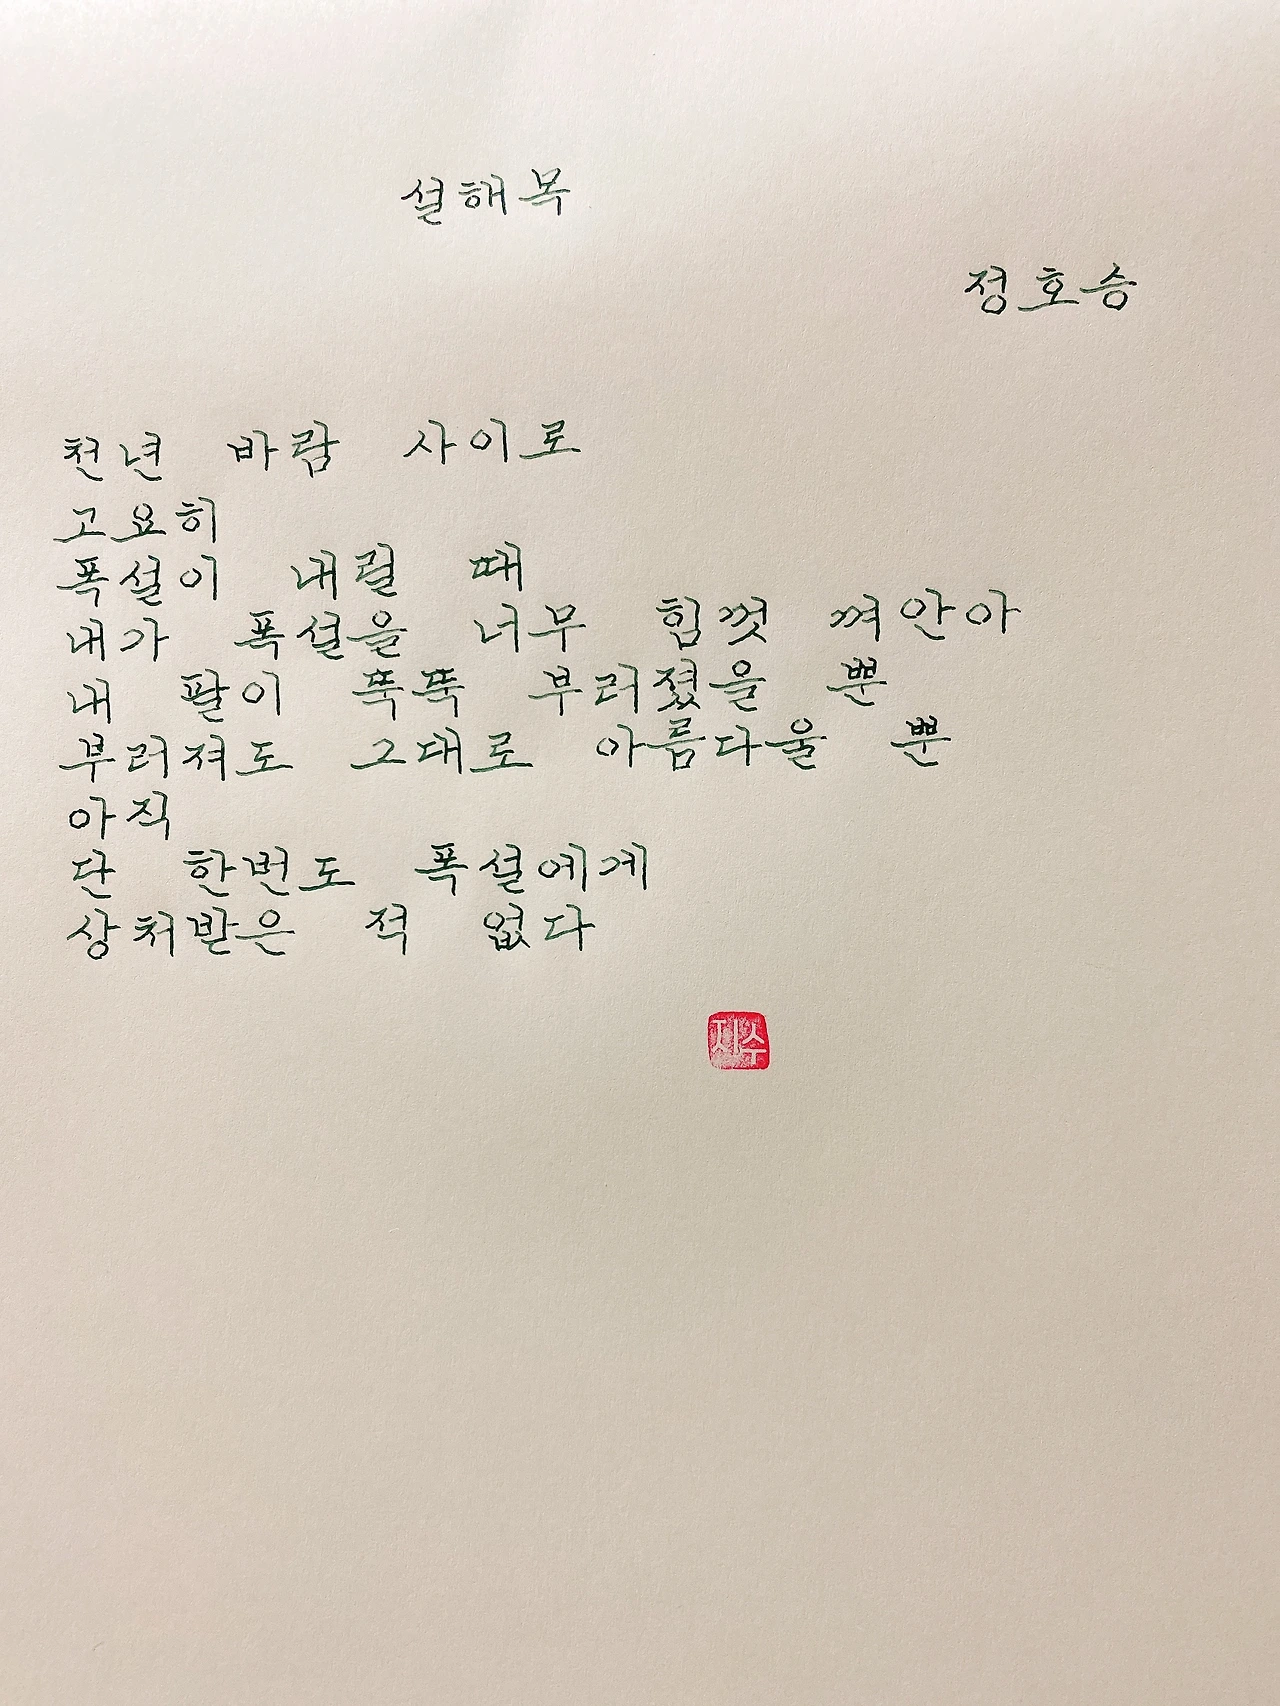 설해목
정호승
천년 바람 사이로
고요히
폭설이 내릴 때
내가 폭설을 너무 힘껏 껴안아
내 팔이 뚝뚝 부러졌을 뿐
부러져도 그대로 아름다울 뿐
아직
단 한번도 폭설에게
상처받은 적 없다
지수